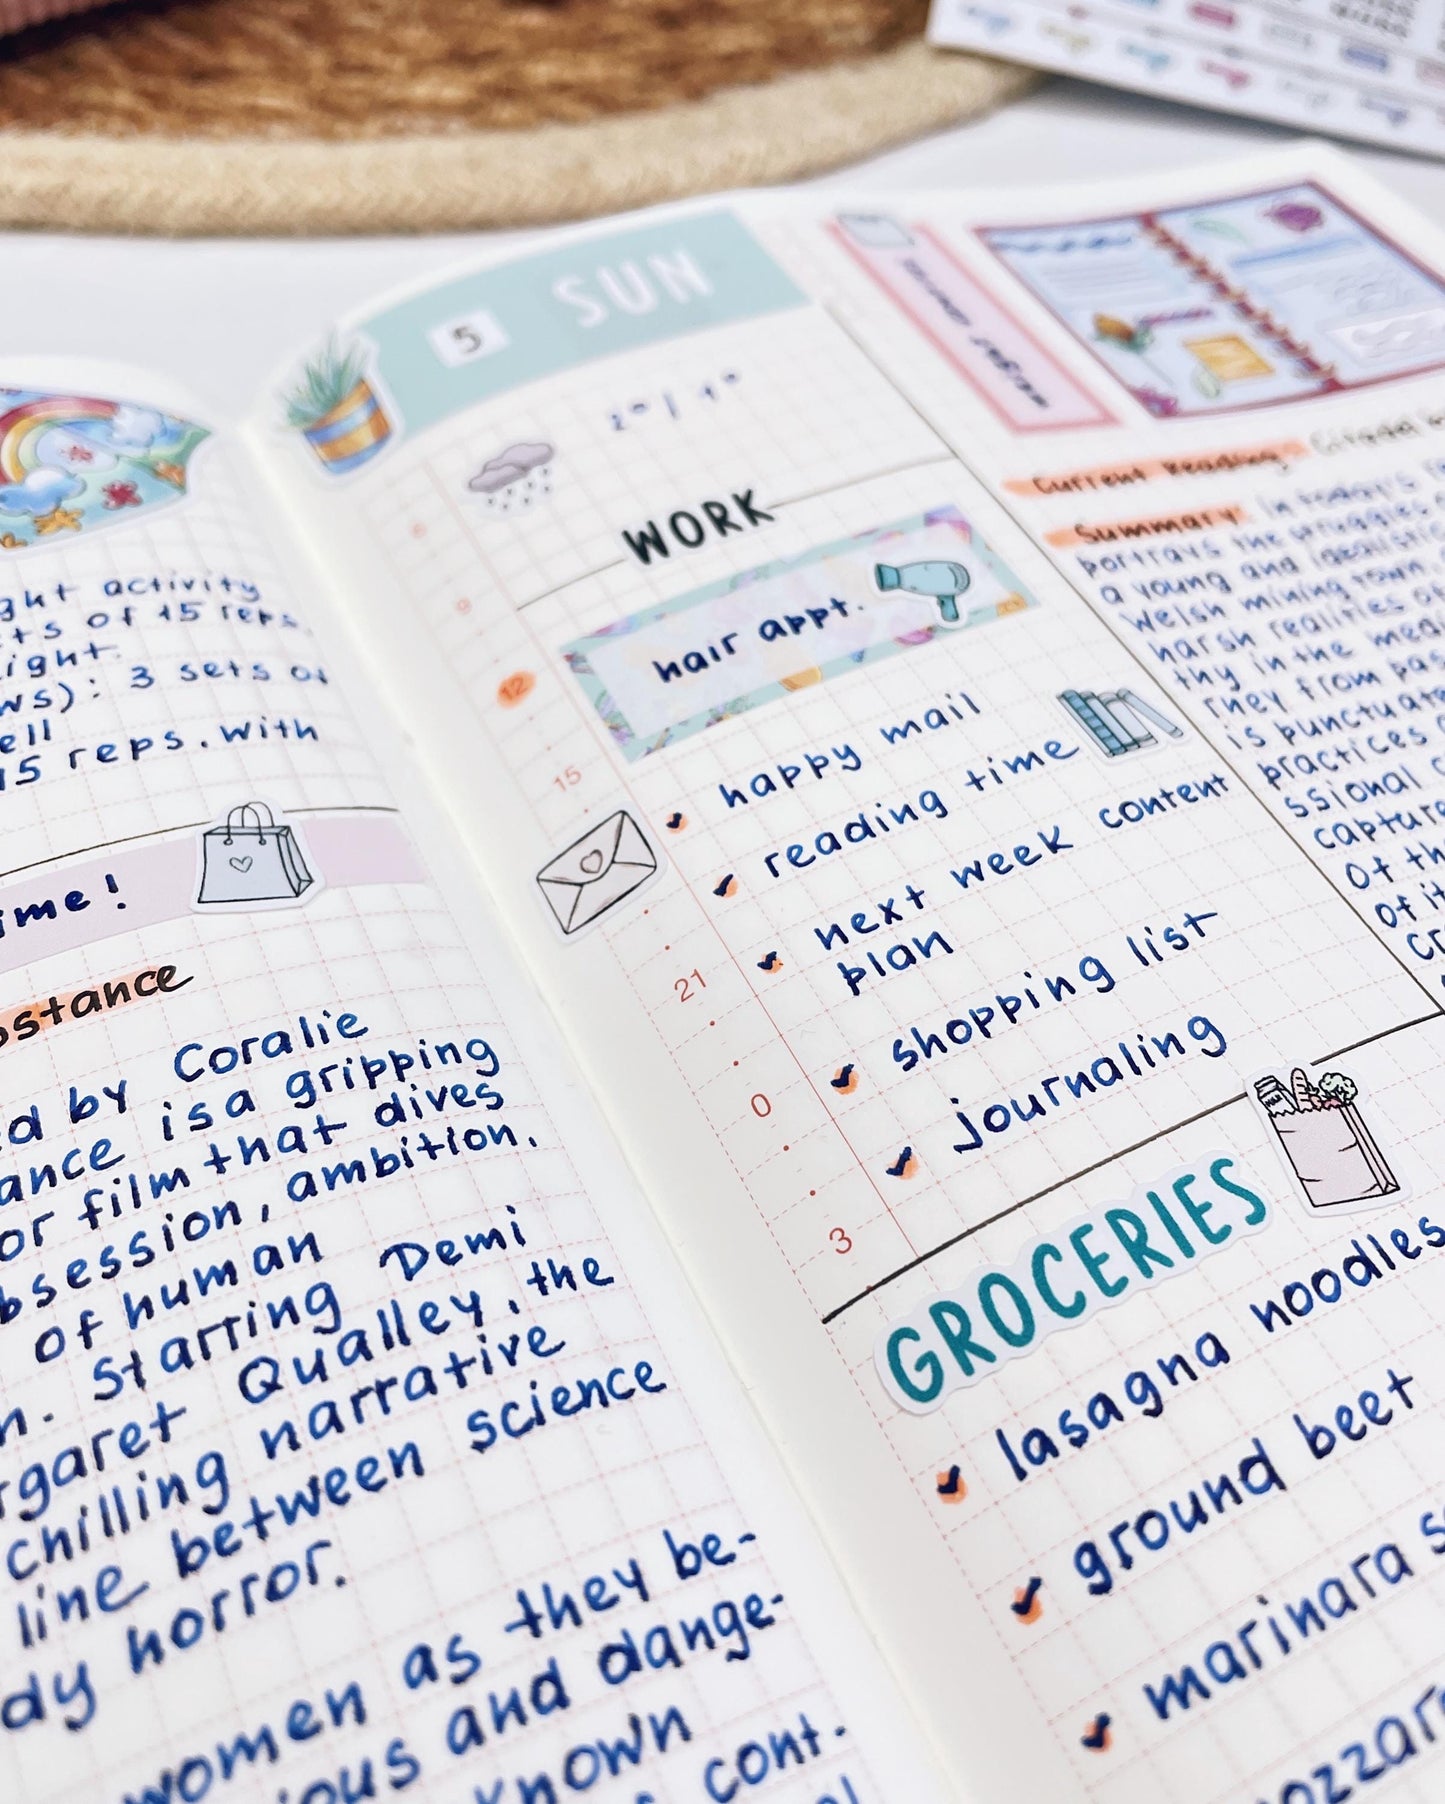 ght activity
ts of 15 reps.
ight.
ws): 3 sets of
ell
15 reps. with
ime!
bstance
ed by Coralie
ance is a gripping
or film that dives
bsession, ambition,
of human
n. Starring Demi
rgaret Qualley, the
chilling narrative
line between science
dy horror.
women as they be-
ious and dange-
known
cont.
5 SUN
2° | 1°
WORK
hair appt.
happy mail
reading time
next week content
plan
shopping list
journaling
9
12
15
21
0
3
GROCERIES
lasagna noodles
ground beef
marinara s
ozzar
Current Reading: Citadel
Summary: In today's r
portrays the struggles
a young and idealistic
Welsh mining town.
harsh realities o
thy in the medi
rney from pas
is punctuate
practices
ssional c
capture
of th
of it
cr